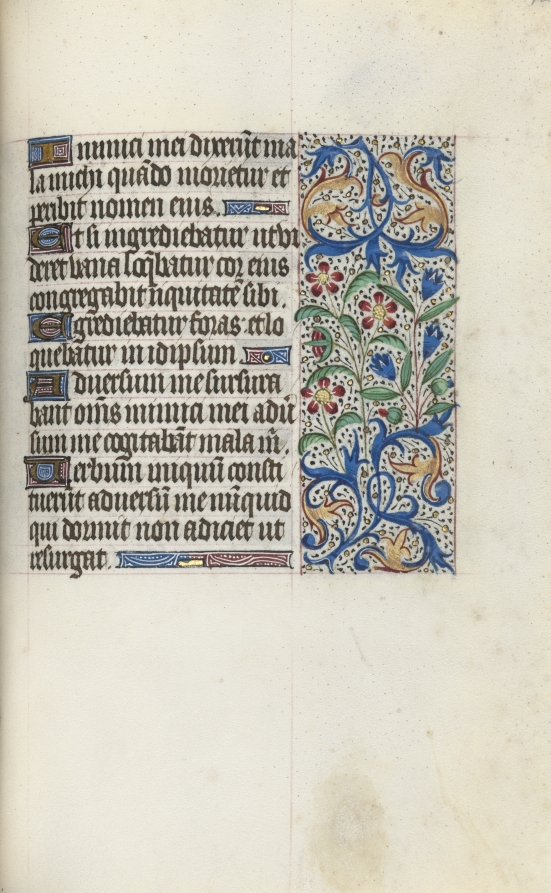 Inimici mei dixerūt ma
la michi quādo morietur et
peribit nomen eius.
Et si ingrediebatur ut vi
deret vana loq̄batur cor eius
congregabit iniquitatē sibi.
Egrediebatur foras. et lo
quebatur in idipsum
Adversum me susura
bant om̄s inimici mei adū
sum me cogitabāt mala m̄.
Verbum iniquū consti
tuerūt adversū me nūquid
qui dormit non adiciet ut
resurgat.